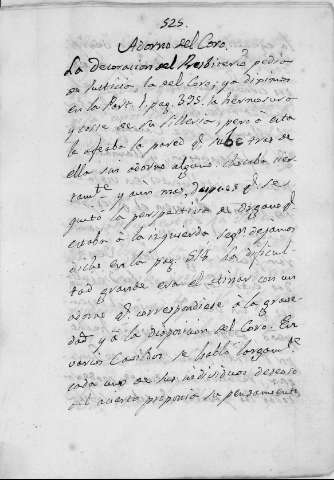 525.
Adorno del Coro.
La decoracion del Presbiterio pedia
en Justicia la del Coro, ya diximos
en la Part. 1. pag. 395. la hermosura
y coste de su silleria, pero a esta
la afeaba la pared q. sube tras de
ella sin adorno alguno chocaba cier-
tamte. y aun mas, despues q. se
quitó la perspectiva de organo q.
estaba á la izquierda segn. dejamos
dicho en la pag. 516. La dificul-
tad grande era el atinar con un
adorno q. correspondiese á la grave-
dad. y á la disposicion del Coro. En
varios Cavildos se habló largamte.
cada uno de sus individuos deseoso
del acierto proponia su pensamiento